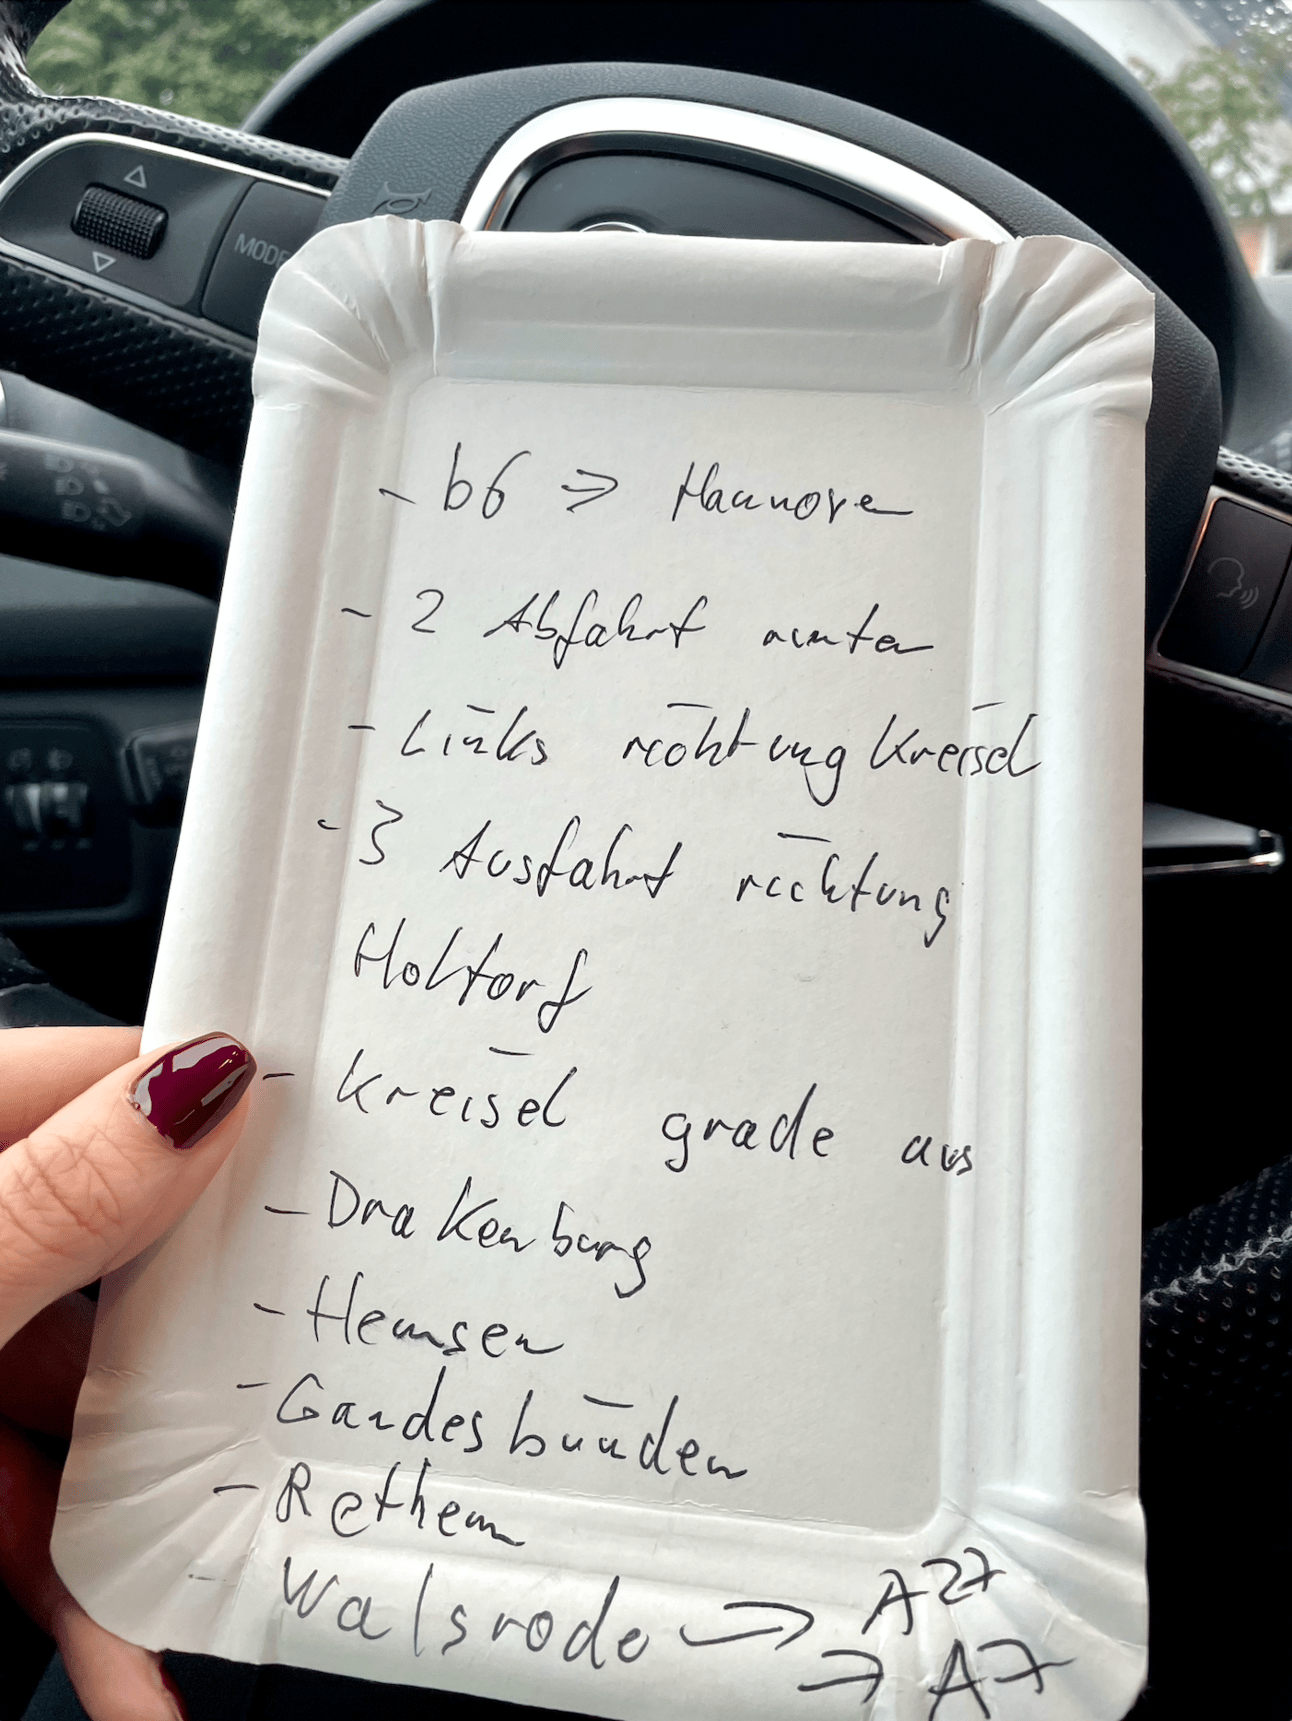 MODE
- b6 => Hannover
- 2 Abfahrt runter
- Links richtung Kreisel
- 3 Ausfahrt richtung
Holtorf
- Kreisel grade aus
- Drakenburg
- Hemsen
- Gandesbünden
- Rethem
- Walsrode -> A27
-> A7